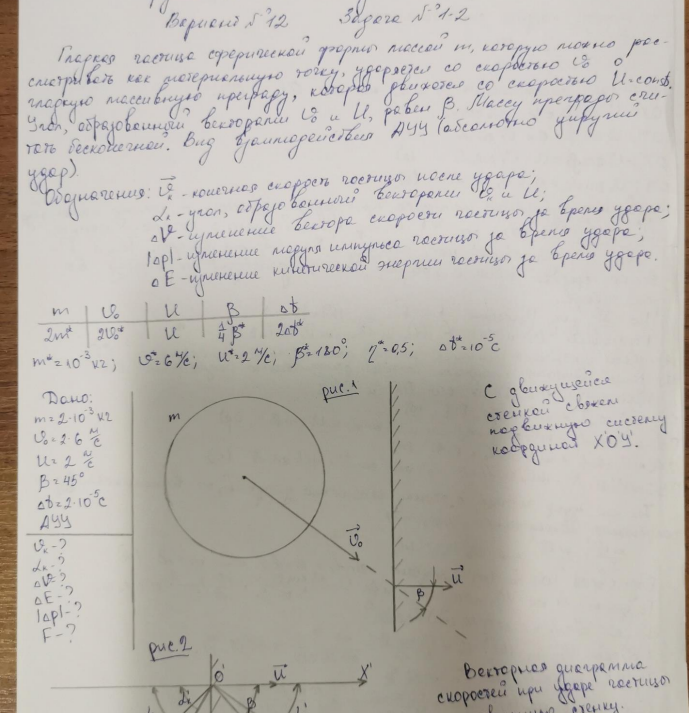 Вариант №12 Задача №1-2
Гладкая частица сферической формы массой m, которую можно рас-
сматривать как материальную точку, ударяется со скоростью v⃗₀ о
гладкую массивную преграду, которая движется со скоростью U=const.
Угол, образованный векторами v⃗₀ и U, равен β. Массу преграды счи-
тать бесконечной. Вид взаимодействия АУУ (абсолютно упругий
удар).
Обозначения: v⃗ₖ - конечная скорость частицы после удара;
αₖ - угол, образованный векторами v⃗ₖ и U;
ΔV - изменение вектора скорости частицы за время удара;
|Δp| - изменение модуля импульса частицы за время удара;
ΔE - изменение кинетической энергии частицы за время удара.
m v₀ U β Δt
2m* 2v₀* U 1/4 β* 2Δt*
m*=10⁻³ кг; v*=6 м/с; U*=2 м/с; β*=180°; η*=0,5; Δt*=10⁻⁵ с
Дано:
m=2·10⁻³ кг
v₀=2·6 м/с
U=2 м/с
β=45°
Δt=2·10⁻⁵ с
АУУ
vₖ-?
αₖ-?
ΔV-?
ΔE-?
|Δp|-?
F-?
рис.1
m
v⃗₀
U⃗
β
С движущейся
стенкой свяжем
подвижную систему
координат X'O'Y'.
рис.2
O' U⃗ X'
α'ₖ β
Векторная диаграмма
скоростей при ударе частицы
стенку.